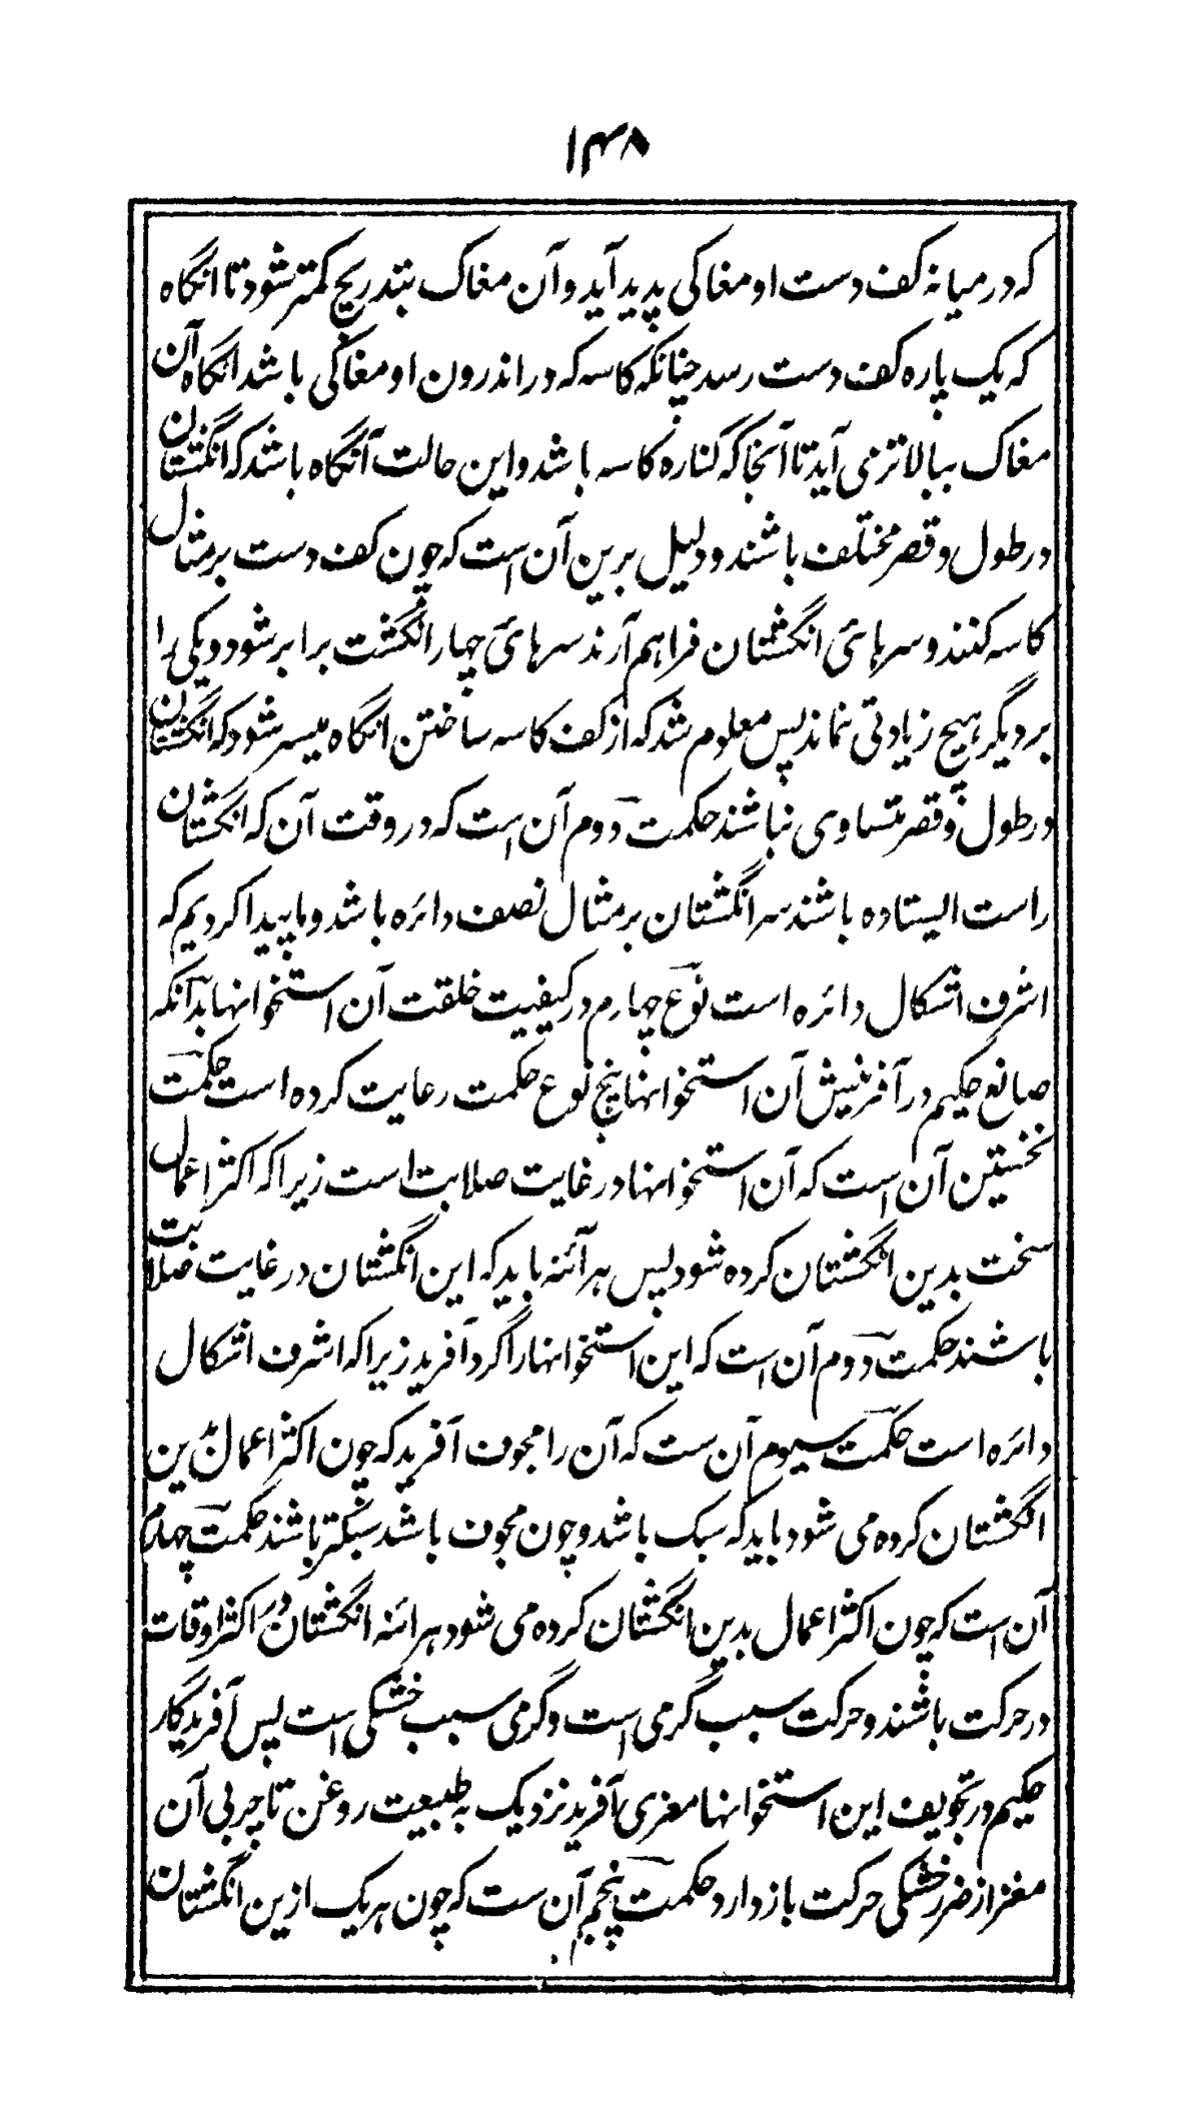 ۱۴۸
که در میانه کف دست او مغاکی پدید آید و آن مغاک بتدریج کمتر شود تا انگاه
که یک پاره کف دست رسد چنانکه کاسه که در اندرون او مغاکی باشد انگاه آن
مغاک ببالاتر می آید تا آنجا که کناره کاسه باشد و این حالت آنگاه باشد که انگشتان
در طول و قصر مختلف باشند و دلیل برین آن است که چون کف دست بر مثال
کاسه کنند و سرهائ انگشتان فراهم آرند سرهائ چهار انگشت برابر شود و یکی را
بر دیگر هیچ زیادتی نماند پس معلوم شد که از کف کاسه ساختن انگاه میسر شود که انگشتان
در طول و قصر متساوی نباشند حکمت دوم آن است که در وقت آن که انگشتان
راست ایستاده باشند سر انگشتان بر مثال نصف دائره باشد و ما پیدا کردیم که
اشرف اشکال دائره است نوع چهارم در کیفیت خلقت آن استخوانها بدانکه
صانع حکیم در آفرینش آن استخوانها پنج نوع حکمت رعایت کرده است حکمت
نخستین آن است که آن استخوانها در غایت صلابت است زیرا که اکثر اعمال
سخت بدین انگشتان کرده شود پس هر آئنه باید که این انگشتان در غایت صلابت
باشند حکمت دوم آن است که این استخوانها را گرد آفرید زیرا که اشرف اشکال
دائره است حکمت سیوم آن ست که آن را مجوف آفرید که چون اکثر اعمال بدین
انگشتان کرده می شود باید که سبک باشد و چون مجوف باشد سبکتر باشند حکمت چهارم
آن است که چون اکثر اعمال بدین انگشتان کرده می شود هر ائنه انگشتان در اکثر اوقات
در حرکت باشند و حرکت سبب گرمی است و گرمی سبب خشکی است پس آفریدگار
حکیم در تجویف این استخوانها مغزی آفرید نزدیک به طبیعت روغن تا چربی آن
مغز از ضرر خشکی حرکت باز دارد حکمت پنجم آن ست که چون هر یک ازین انگشتان